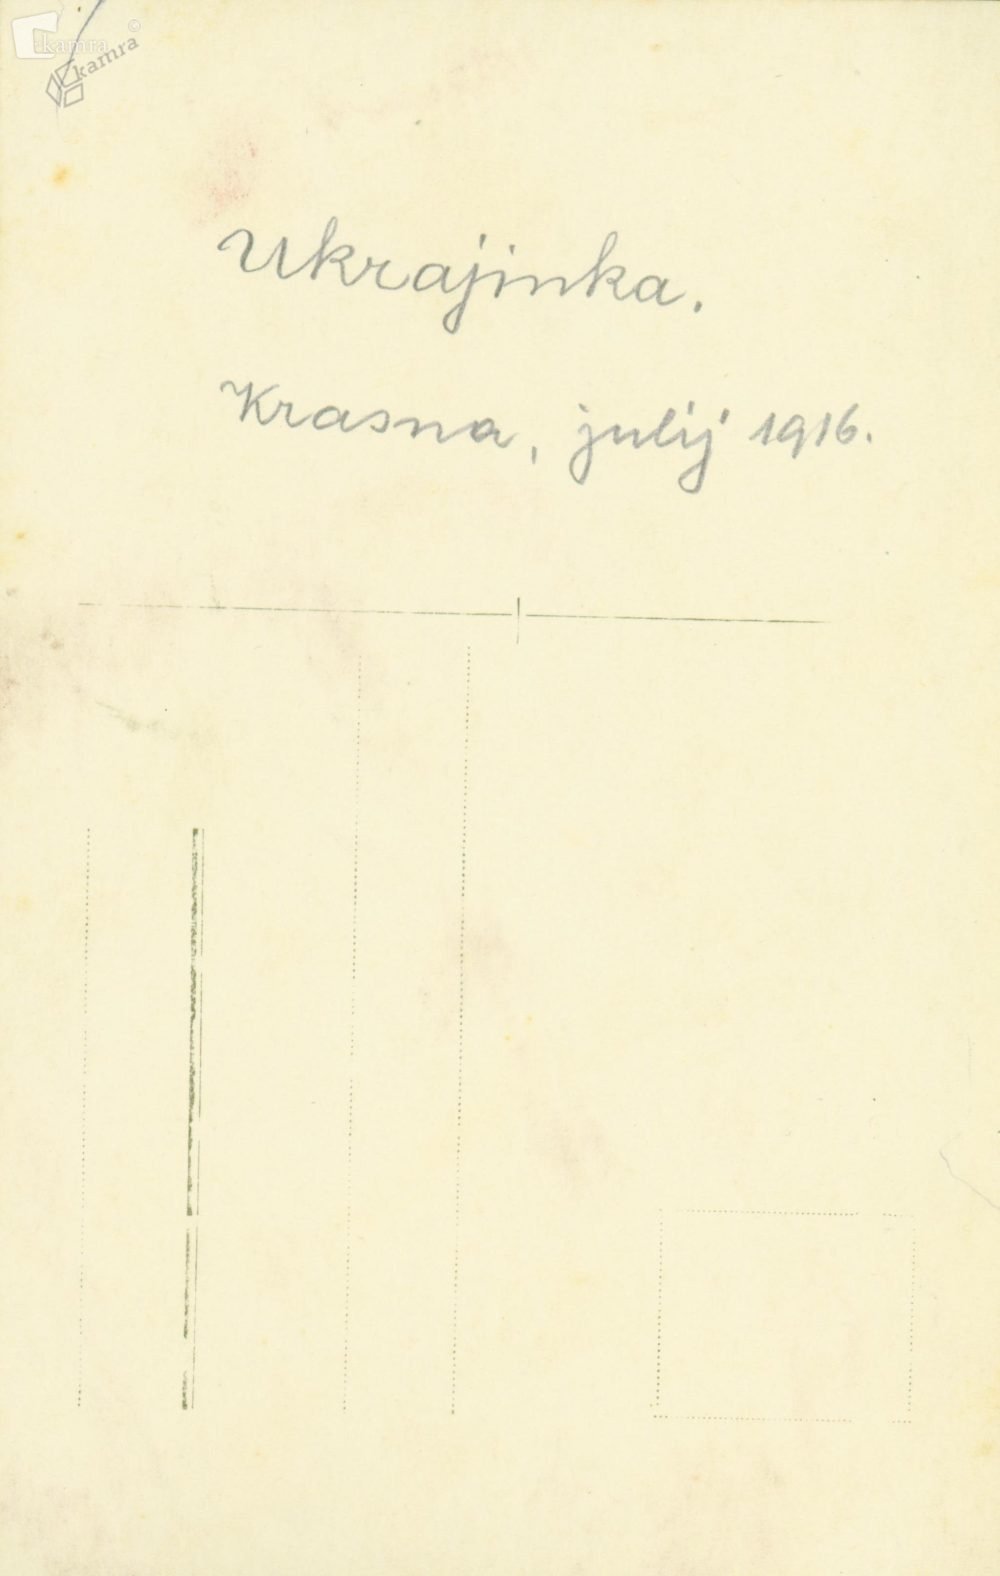 kamra
kamra
©
Ukrajinka.
Krasna, julij 1916.